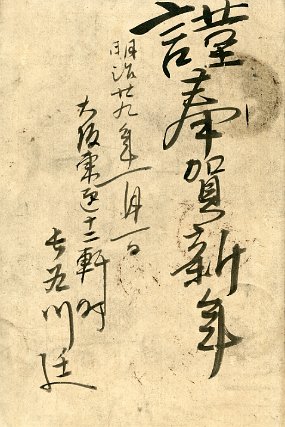 謹奉賀新年
明治廿九年一月一日
大阪東区十二軒町
長谷川延